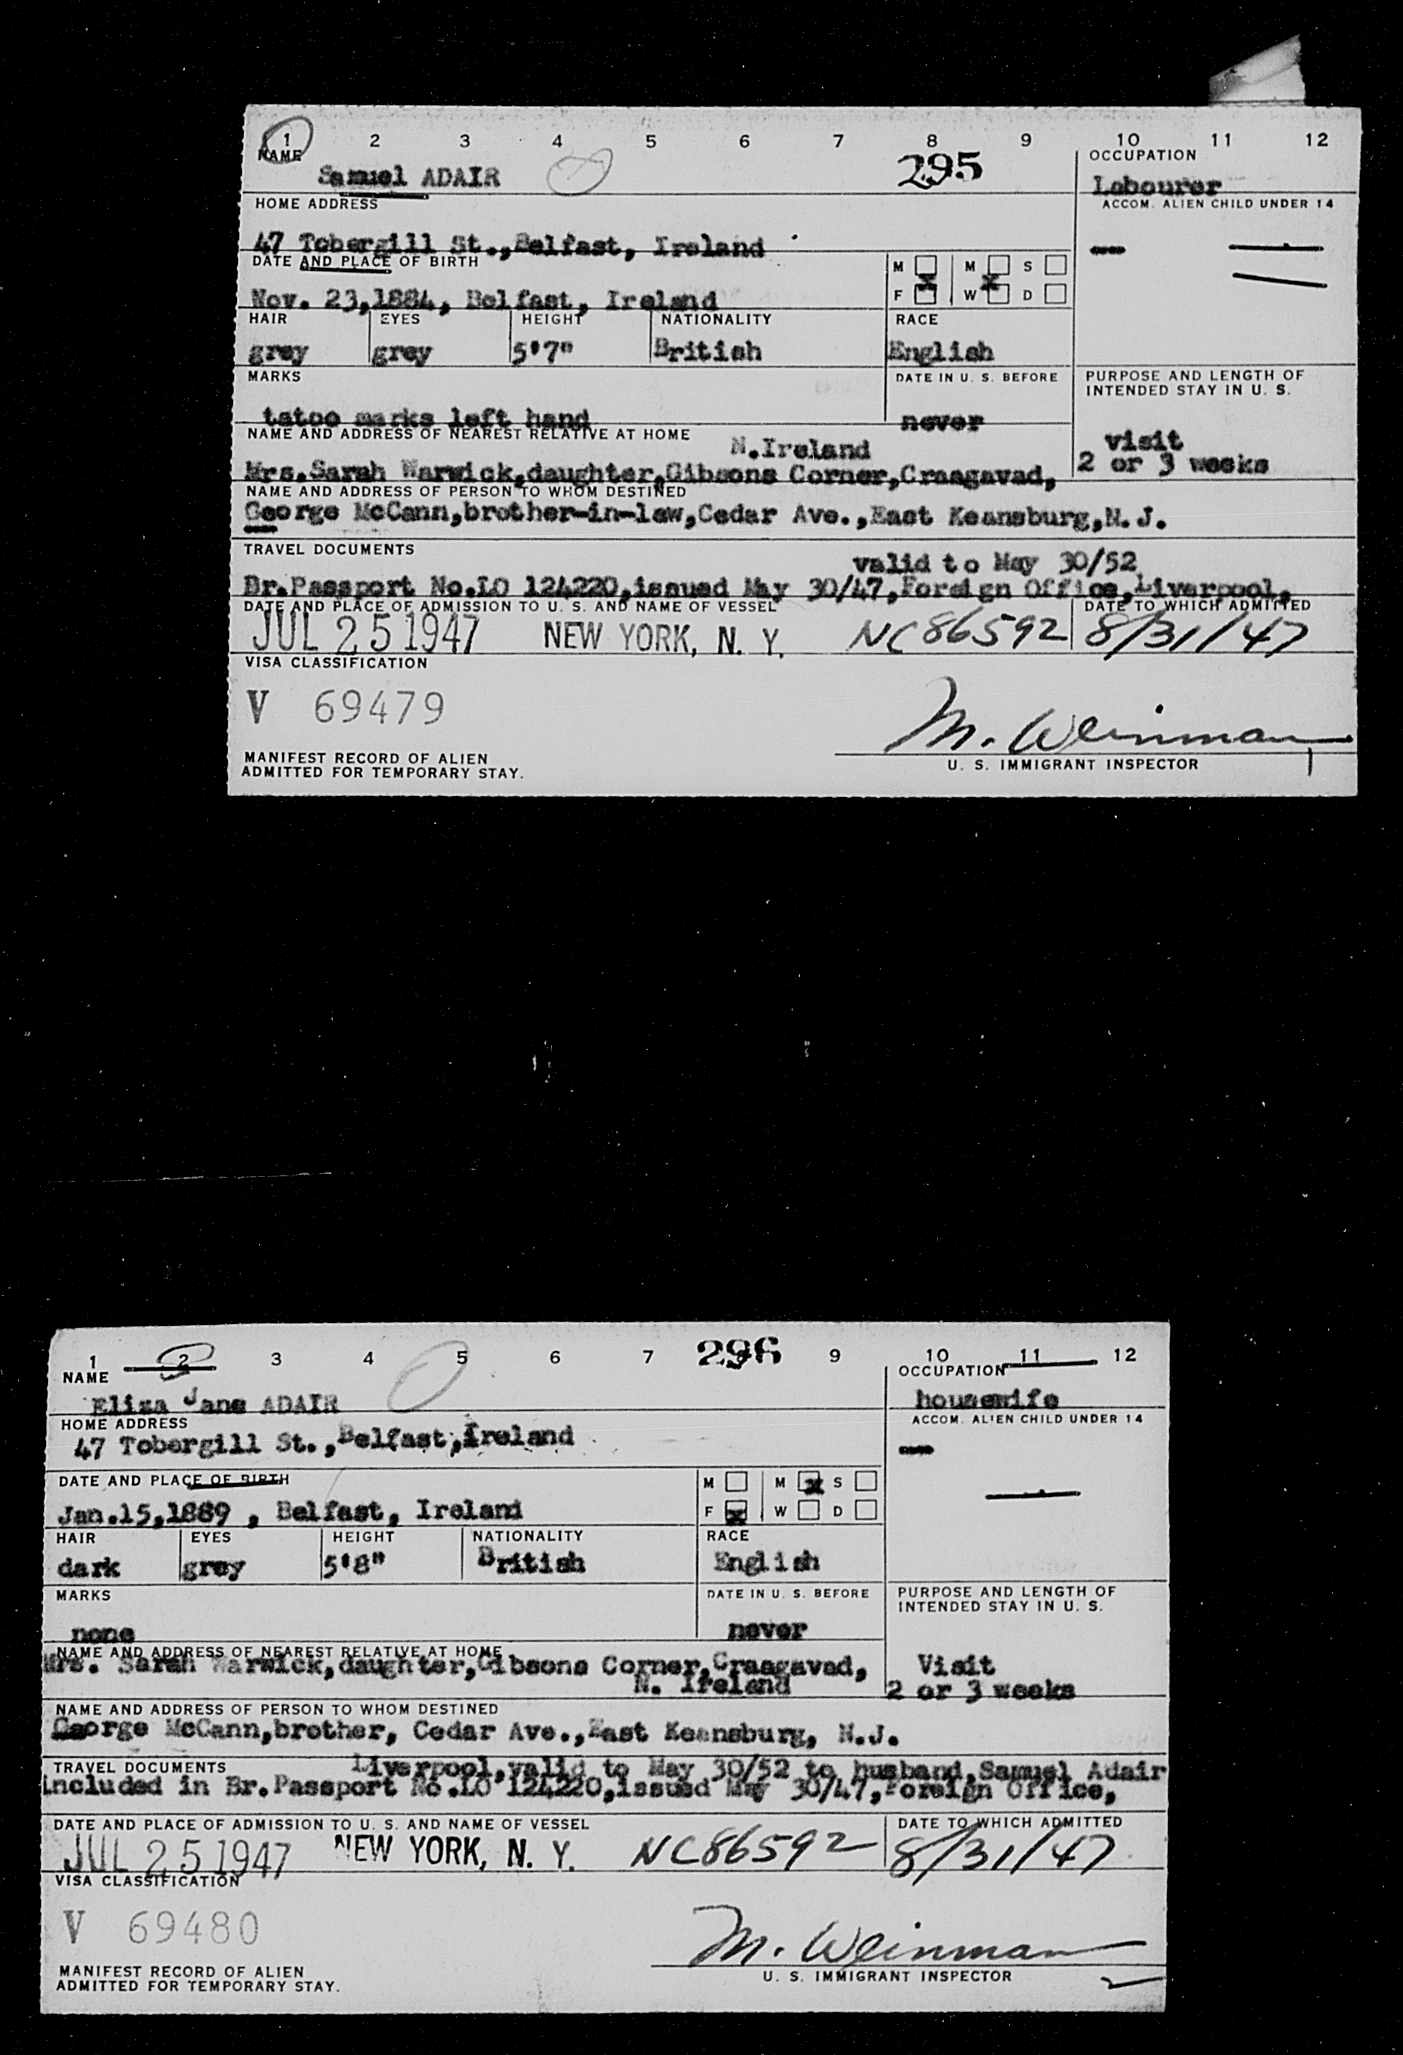 1 2 3 4 5 6 7 8 9 10 11 12
NAME 295 OCCUPATION
Samuel ADAIR Labourer
HOME ADDRESS ACCOM. ALIEN CHILD UNDER 14
47 Tobergill St.,Belfast, Ireland ---
DATE AND PLACE OF BIRTH M M S
F W D
Nov. 23,1884, Belfast, Ireland
HAIR EYES HEIGHT NATIONALITY RACE
grey grey 5'7" British English
MARKS DATE IN U. S. BEFORE PURPOSE AND LENGTH OF
INTENDED STAY IN U. S.
tatoo marks left hand never
NAME AND ADDRESS OF NEAREST RELATIVE AT HOME N.Ireland visit
Mrs.Sarah Warwick,daughter,Gibsons Corner,Craagavad, 2 or 3 weeks
NAME AND ADDRESS OF PERSON TO WHOM DESTINED
George McCann,brother-in-law,Cedar Ave.,East Keansburg,N.J.
TRAVEL DOCUMENTS valid to May 30/52
Br.Passport No.LO 124220,issued May 30/47,Foreign Office,Liverpool,
DATE AND PLACE OF ADMISSION TO U. S. AND NAME OF VESSEL DATE TO WHICH ADMITTED
JUL 25 1947 NEW YORK, N. Y. NC86592 8/31/47
VISA CLASSIFICATION
V 69479
M. Weinman
MANIFEST RECORD OF ALIEN
ADMITTED FOR TEMPORARY STAY. U. S. IMMIGRANT INSPECTOR
1 2 3 4 5 6 7 296 9 10 11 12
NAME OCCUPATION
Eliza Jane ADAIR housewife
HOME ADDRESS ACCOM. ALIEN CHILD UNDER 14
47 Tobergill St.,Belfast,Ireland ---
DATE AND PLACE OF BIRTH M M S
Jan.15,1889 , Belfast, Ireland F W D
HAIR EYES HEIGHT NATIONALITY RACE
dark grey 5'8" British English
MARKS DATE IN U. S. BEFORE PURPOSE AND LENGTH OF
INTENDED STAY IN U. S.
none never
NAME AND ADDRESS OF NEAREST RELATIVE AT HOME
Mrs. Sarah Warwick,daughter,Gibsons Corner,Craagavad, Visit
N. Ireland 2 or 3 weeks
NAME AND ADDRESS OF PERSON TO WHOM DESTINED
George McCann,brother, Cedar Ave.,East Keansburg, N.J.
TRAVEL DOCUMENTS Liverpool,valid to May 30/52 to husband,Samuel Adair
included in Br.Passport No.LO 124220,issued May 30/47,Foreign Office,
DATE AND PLACE OF ADMISSION TO U. S. AND NAME OF VESSEL DATE TO WHICH ADMITTED
JUL 25 1947 NEW YORK, N. Y. NC86592 8/31/47
VISA CLASSIFICATION
V 69480
M. Weinman
MANIFEST RECORD OF ALIEN
ADMITTED FOR TEMPORARY STAY. U. S. IMMIGRANT INSPECTOR